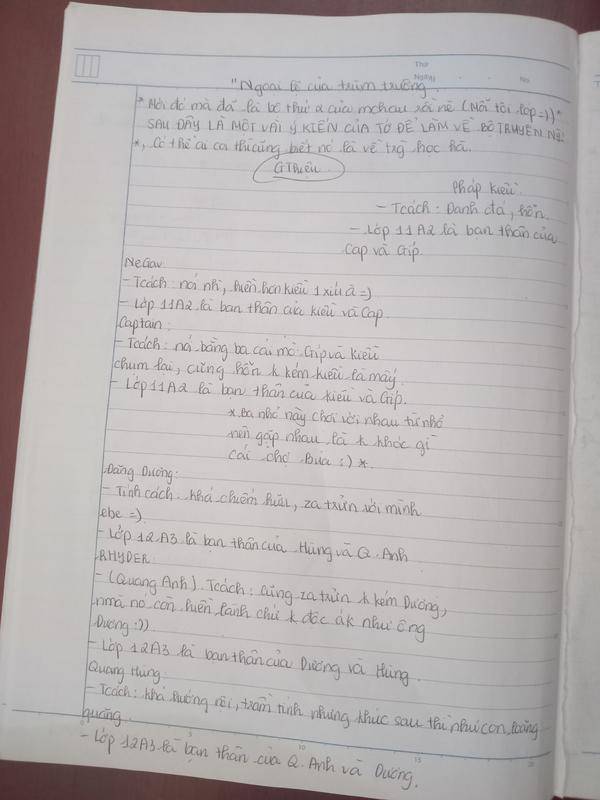 Thứ
Ngày No
"Ngoại lệ của trùm trường"
* Mới đó mà đã là bộ thứ 2 của mchau rồi nè (Mối tôi lop =))*
SAU ĐÂY LÀ MỘT VÀI Ý KIẾN CỦA TỚ ĐỂ LÀM VỀ BỘ TRUYỆN NÀY!
*, Có thể ai coi thì cũng biết nó là về trg học hả.
GThiệu
Pháp Kiều:
- Tcách: Đanh đá, hỗn.
- Lớp 11A2 là bạn thân của
Cap và Gíp.
NeGav:
- Tcách: nói nhì, hiền hơn kiều 1 xíu à =)
- Lớp 11A2 là bạn thân của kiều và Cap.
Captain:
- Tcách: nói bằng ba cái mỏ Gíp và kiều
chụm lại, cũng hỗn k kém kiều là mấy.
- Lớp 11A2 là bạn thân của kiều và Gíp.
* ba nhỏ này chơi với nhau từ nhỏ
nên gặp nhau là k khác gì
cái chợ búa :) *.
Đăng Dương:
- Tính cách: khá chiếm hữu, za trưởn với mình
ebe =).
- Lớp 12A3 là bạn thân của Hùng và Q. Anh
RHYDER:
- (Quang Anh). Tcách: cũng za trưởn k kém Dương,
nmà nó còn hiền lành chứ k độc ák như ông
Dương :))
- Lớp 12A3 là bạn thân của Dương và Hùng.
Quang Hùng:
- Tcách: khá hướng nội, trầm tính nhưng khúc sau thì như con loăng
quăng
- Lớp 12A3 là bạn thân của Q. Anh và Dương.
5 10 15 20